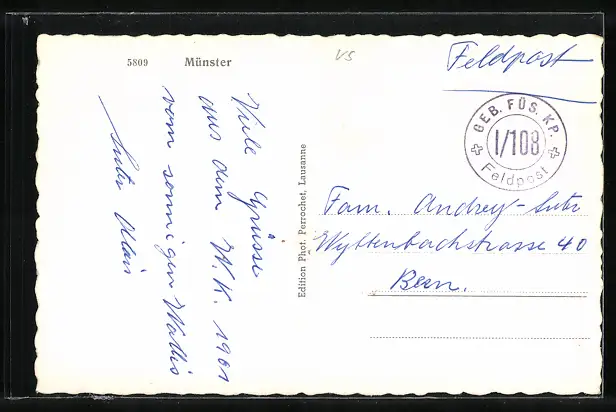 5809 Münster
VS
Feldpost
GEB. FÜS. KP.
I/108
Feldpost
Viele Grüsse
aus dem W.K. 1961
vom sonnigen Wallis
Suter
Edition Phot. Perrochet, Lausanne
Fam. Andrey-Suter
Wyttenbachstrasse 40
Bern.